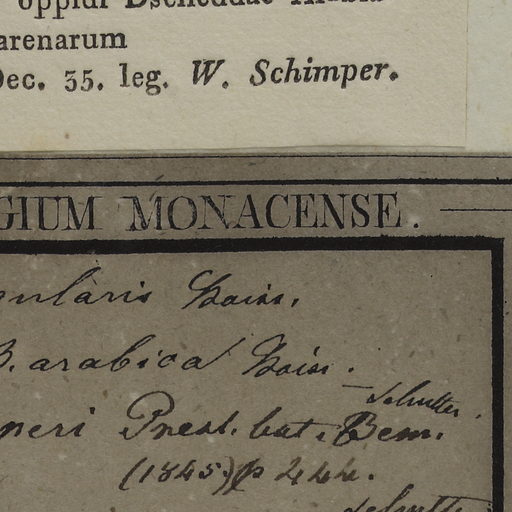 oppidi Dscheddae Arabia
arenarum
Dec. 35. leg. W. Schimper.
GIUM MONACENSE.
ularis Boiss.
B. arabica Boiss.
Schultz.
peri Presl. bot. Bem.
(1845) p 244.